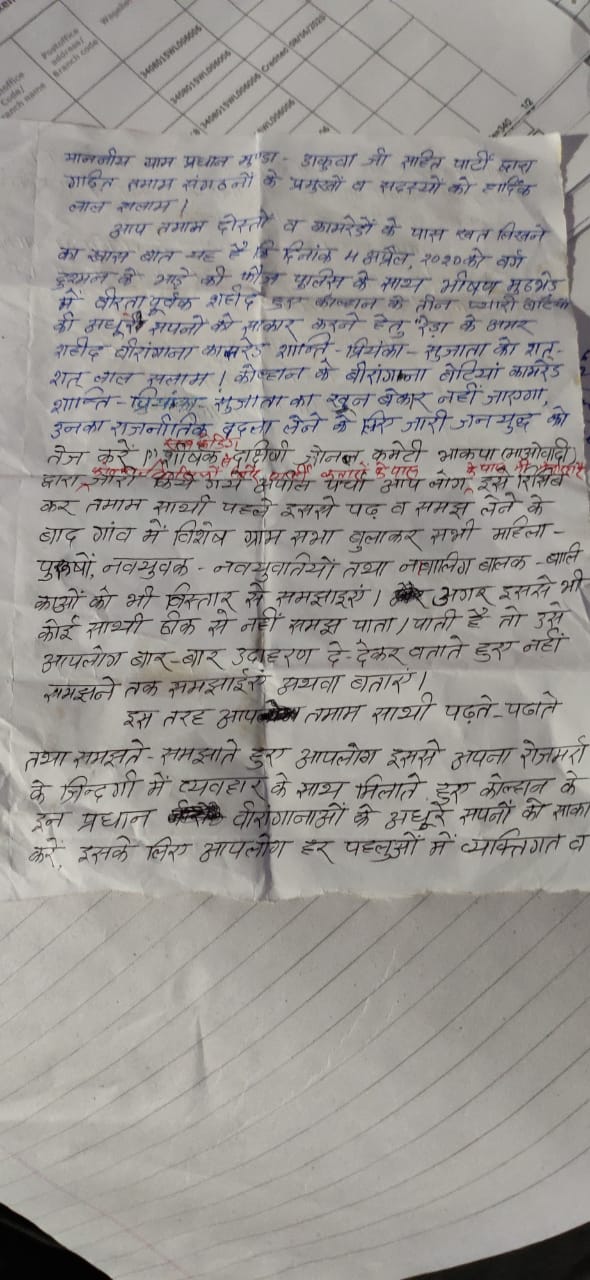 Postoffice Code/ Branch name
Postoffice address/ Branch code
340801SWL006006
340801SWL006006
340801SWL006006
Created 08/06/2020
1/2
माननीय ग्राम प्रधान मुण्डा - डाकुवा जी सहित पार्टी द्वारा
गठित तमाम संगठनों के प्रमुखों व सदस्यों को हार्दिक
लाल सलाम!
आप तमाम दोस्तों व कामरेडों के पास खत लिखने
का खास बात यह है कि दिनांक 4 अप्रैल, 2020 को वर्ग
दुश्मन के भाड़े की फौज पुलिस के साथ भीषण मुठभेड़
में वीरता पूर्वक शहीद हुए कोल्हान के तीन प्यारी
की अधूरे सपनों को साकार करने हेतु "रेड़ा के अमर
शहीद वीरांगना कामरेड शान्ति - प्रियंका - सुजाता को शत्-
शत् लाल सलाम! कोल्हान के वीरांगना बेटियां कामरेड
शान्ति - प्रियंका सुजाता का खून बेकार नहीं जाएगा,
उनका राजनीतिक बदला लेने के लिए जारी जनयुद्ध को
तेज करें।" शीर्षक से दक्षिणी जोनल कमेटी भाकपा (माओवादी)
द्वारा जारी किये गये अपील पर्चा आप लोग इसे रिसिव
कर तमाम साथी पहले इससे पढ़ व समझ लेने के
बाद गांव में विशेष ग्राम सभा बुलाकर सभी महिला-
पुरूषों, नवयुवक - नवयुवतियों तथा नाबालिग बालक - बालि
काओं को भी विस्तार से समझाइएं। अगर इससे भी
कोई साथी ठीक से नहीं समझ पाता/पाती है तो उसे
आपलोग बार-बार उदाहरण दे-देकर बताते हुए नहीं
समझने तक समझाईए अथवा बताएं।
इस तरह आप तमाम साथी पढ़ते-पढाते
तथा समझते - समझाते हुए आपलोग इससे अपना रोजमर्रा
के जिन्दगी में व्यवहार के साथ मिलाते हुए कोल्हान के
इन प्रधान वीरांगानाओं के अधूरे सपनों को साका
करें, इसके लिए आपलोग हर पहलुओं में व्यक्तिगत व